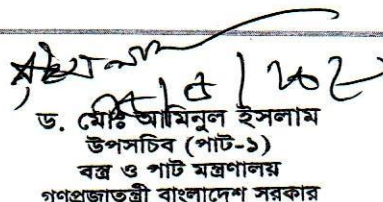 ড. মোঃ আমিনুল ইসলাম
উপসচিব (পাট-১)
বস্ত্র ও পাট মন্ত্রণালয়
গণপ্রজাতন্ত্রী বাংলাদেশ সরকার